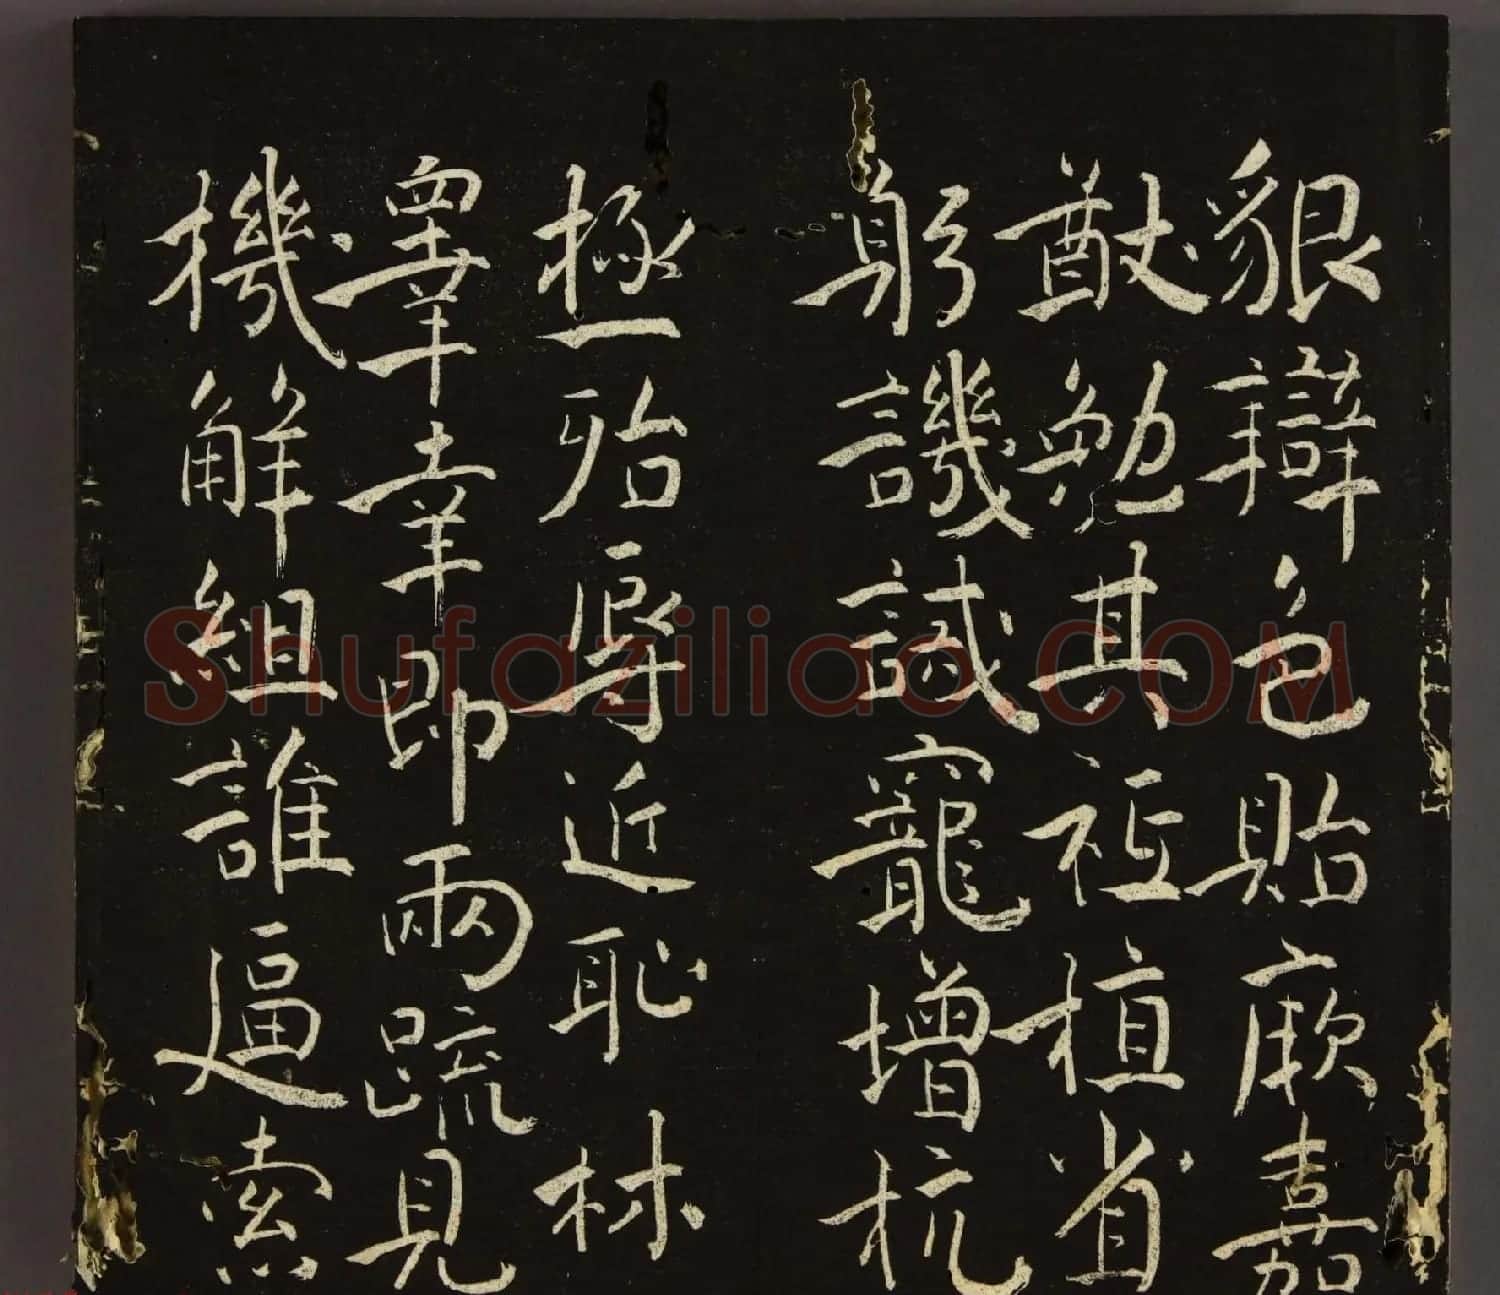 貌辯色貽厥嘉
猷勉其祗植省
躬譏誡寵增杭
極殆辱近恥林
睪幸即兩疏見
機解組誰逼索
Shufaziliao.COM